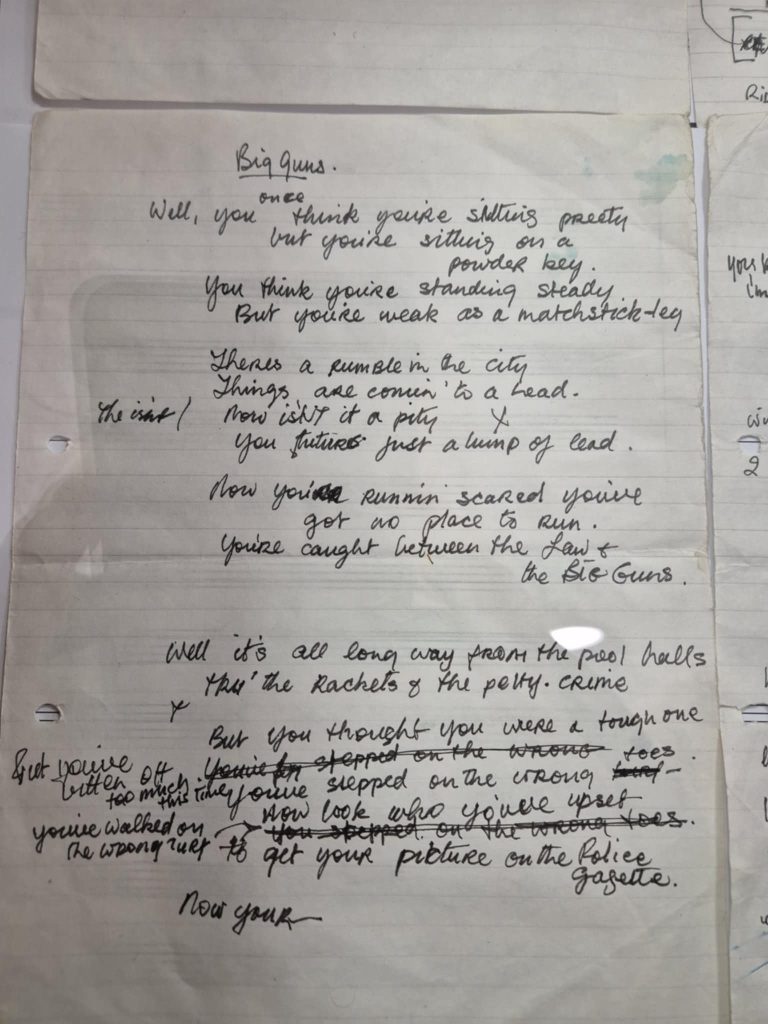 Big Guns.
once
Well, you think you're sitting pretty
but you're sitting on a
powder key.
You think you're standing steady
But you're weak as a matchstick-leg
Theres a rumble in the city
Things are comin' to a head.
The isn't / Now isn't it a pity X
You future just a lump of lead.
Now you're runnin' scared you've
got no place to run.
You're caught between the Law &
the BIG GUNS.
Well it's all long way from the pool halls
thru' the rackets & the petty-crime
X
But you thought you were a tough one
But you've
bitten off
too much
this time
You've stepped on the wrong toes
you've stepped on the wrong turf
Now look who you've upset
you've walked on
the wrong turf
You stepped on the wrong toes.
to get your picture on the Police
Gazette.
Now your
Rid
you k
i'm
2